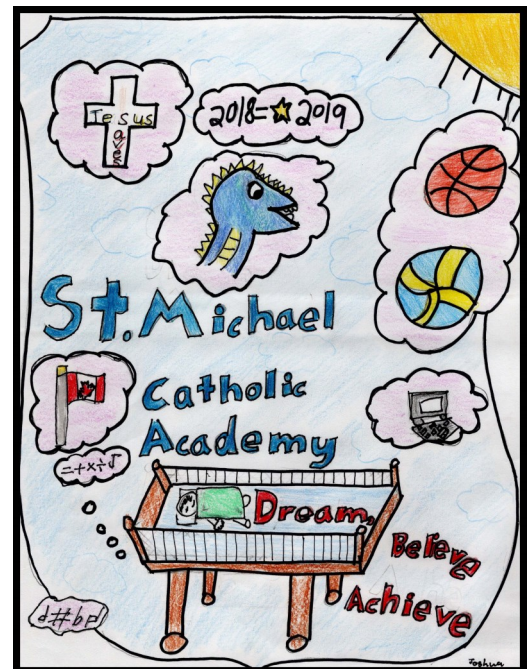 Jesus
aves
2018=⭐2019
St. Michael
Catholic
Academy
=+×÷√
Dream,
Believe
Achieve
Joshua